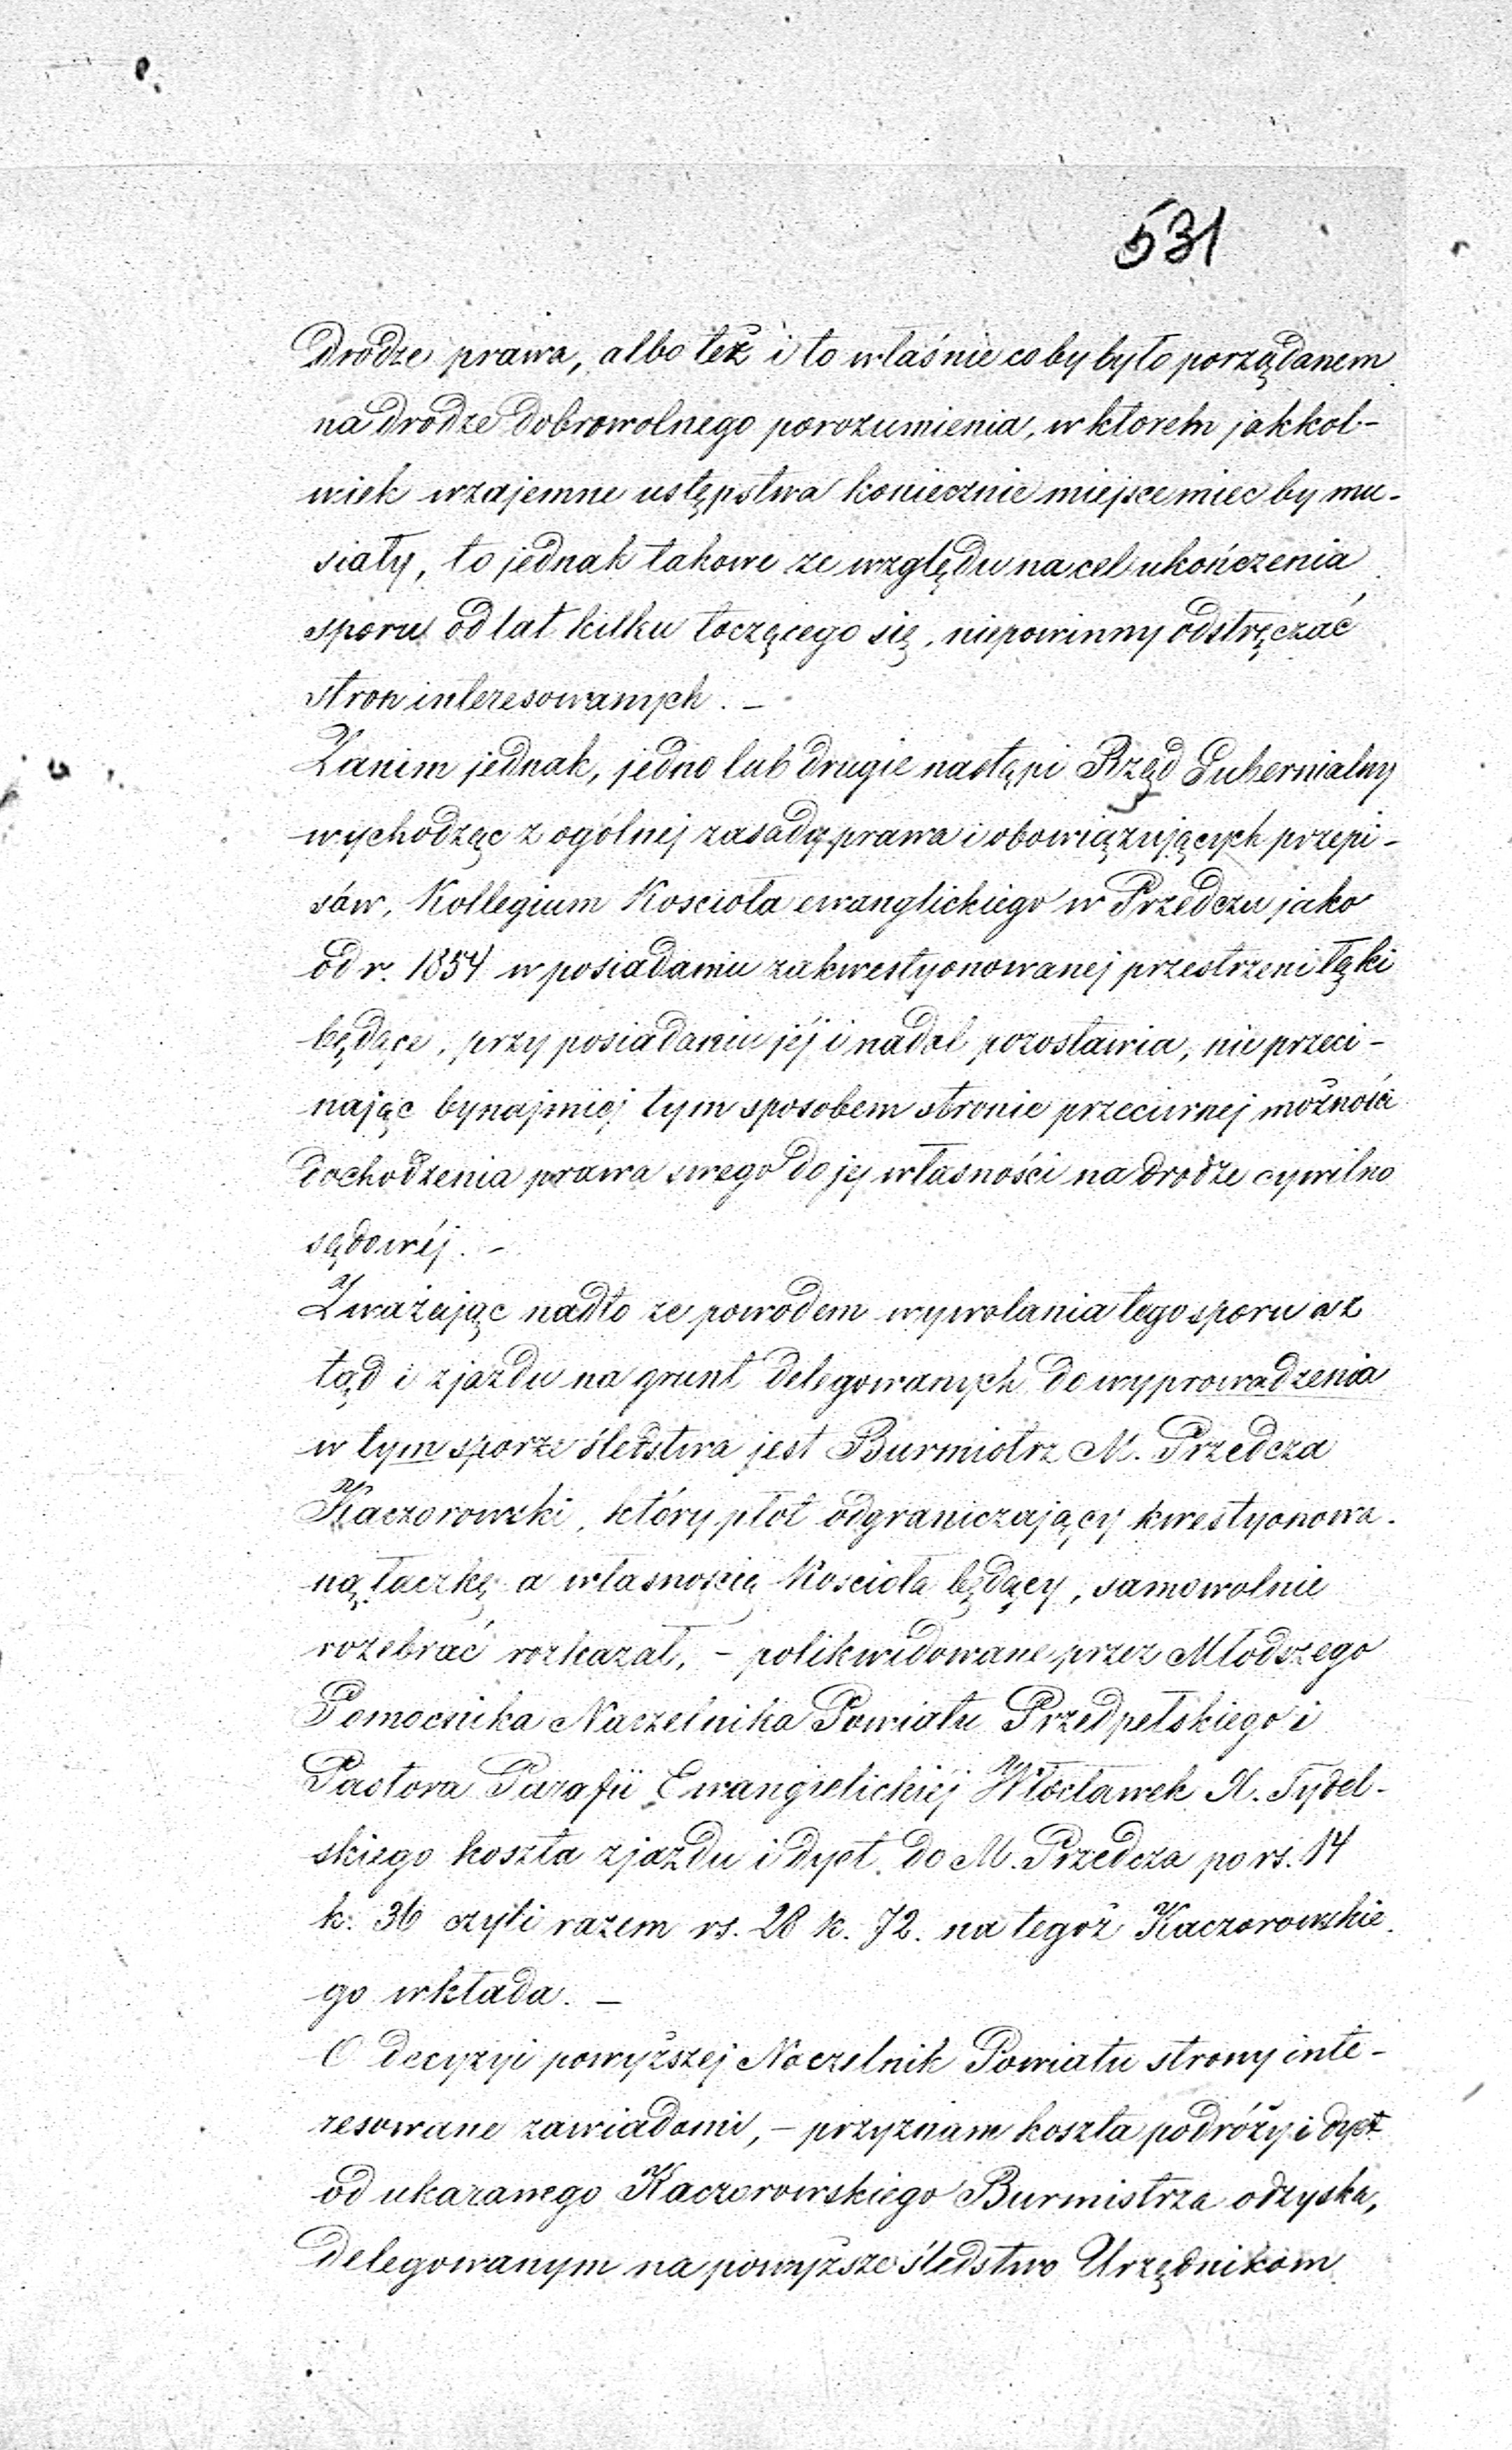 531
drodze prawa, albo też i to właśnie coby było porządanem
na drodze dobrowolnego porozumienia, w ktorem jakkol-
wiek wzajemne ustępstwa koniecznie miejsce miec by mu-
siały, to jednak takowe ze względu na cel ukończenia
sporu od lat kilku toczącego się, niepowinny odstręczać
stron interesowanych. –
Zanim jednak, jedno lub drugie nastąpi Rząd Gubernialny
wychodząc z ogólnej zasady prawa i obowiązujących przepi-
sów, Kollegium Koscioła ewanglickiego w Przedczu jako
od r. 1854 w posiadaniu zakwestyonowanej przestrzeni łąki
będące, przy posiadaniu jéj i nadal pozostawia, nie przeci-
nając bynajmniej tym sposobem stronie przeciwnej możności
dochodzenia prawa swego do jej własności na drodze cywilno
sądowéj. –
Zważając nadto ze powodem wywołania tego sporu a z
tąd i zjazdu na grunt delegowanych do wyprowadzenia
w tym sporze śledstwa jest Burmistrz M. Przedcza
Kaczorowski, który płot odgraniczający kwestyonowa-
ną łączkę a własnością Koscioła będący, samowolnie
rozebrać rozkazał, – polikwidowane przez Młodszego
Pomocnika Naczelnika Powiatu i
Pastora Parafii Ewangielickiéj Włocławek X. Tydel-
skiego koszta zjazdu i dyet do M. Przedcza po rs. 14
k. 36 czyli razem rs. 28 k. 72. na tegoż Kaczorowskie-
go wkłada. –
O decyzyi powyższej Naczelnik Powiatu strony inte-
resowane zawiadomi, – przyznane koszta podróży i dyet
od ukaranego Kaczorowskiego Burmistrza odzyska,
delegowanym na powyższe śledstwo Urzędnikom